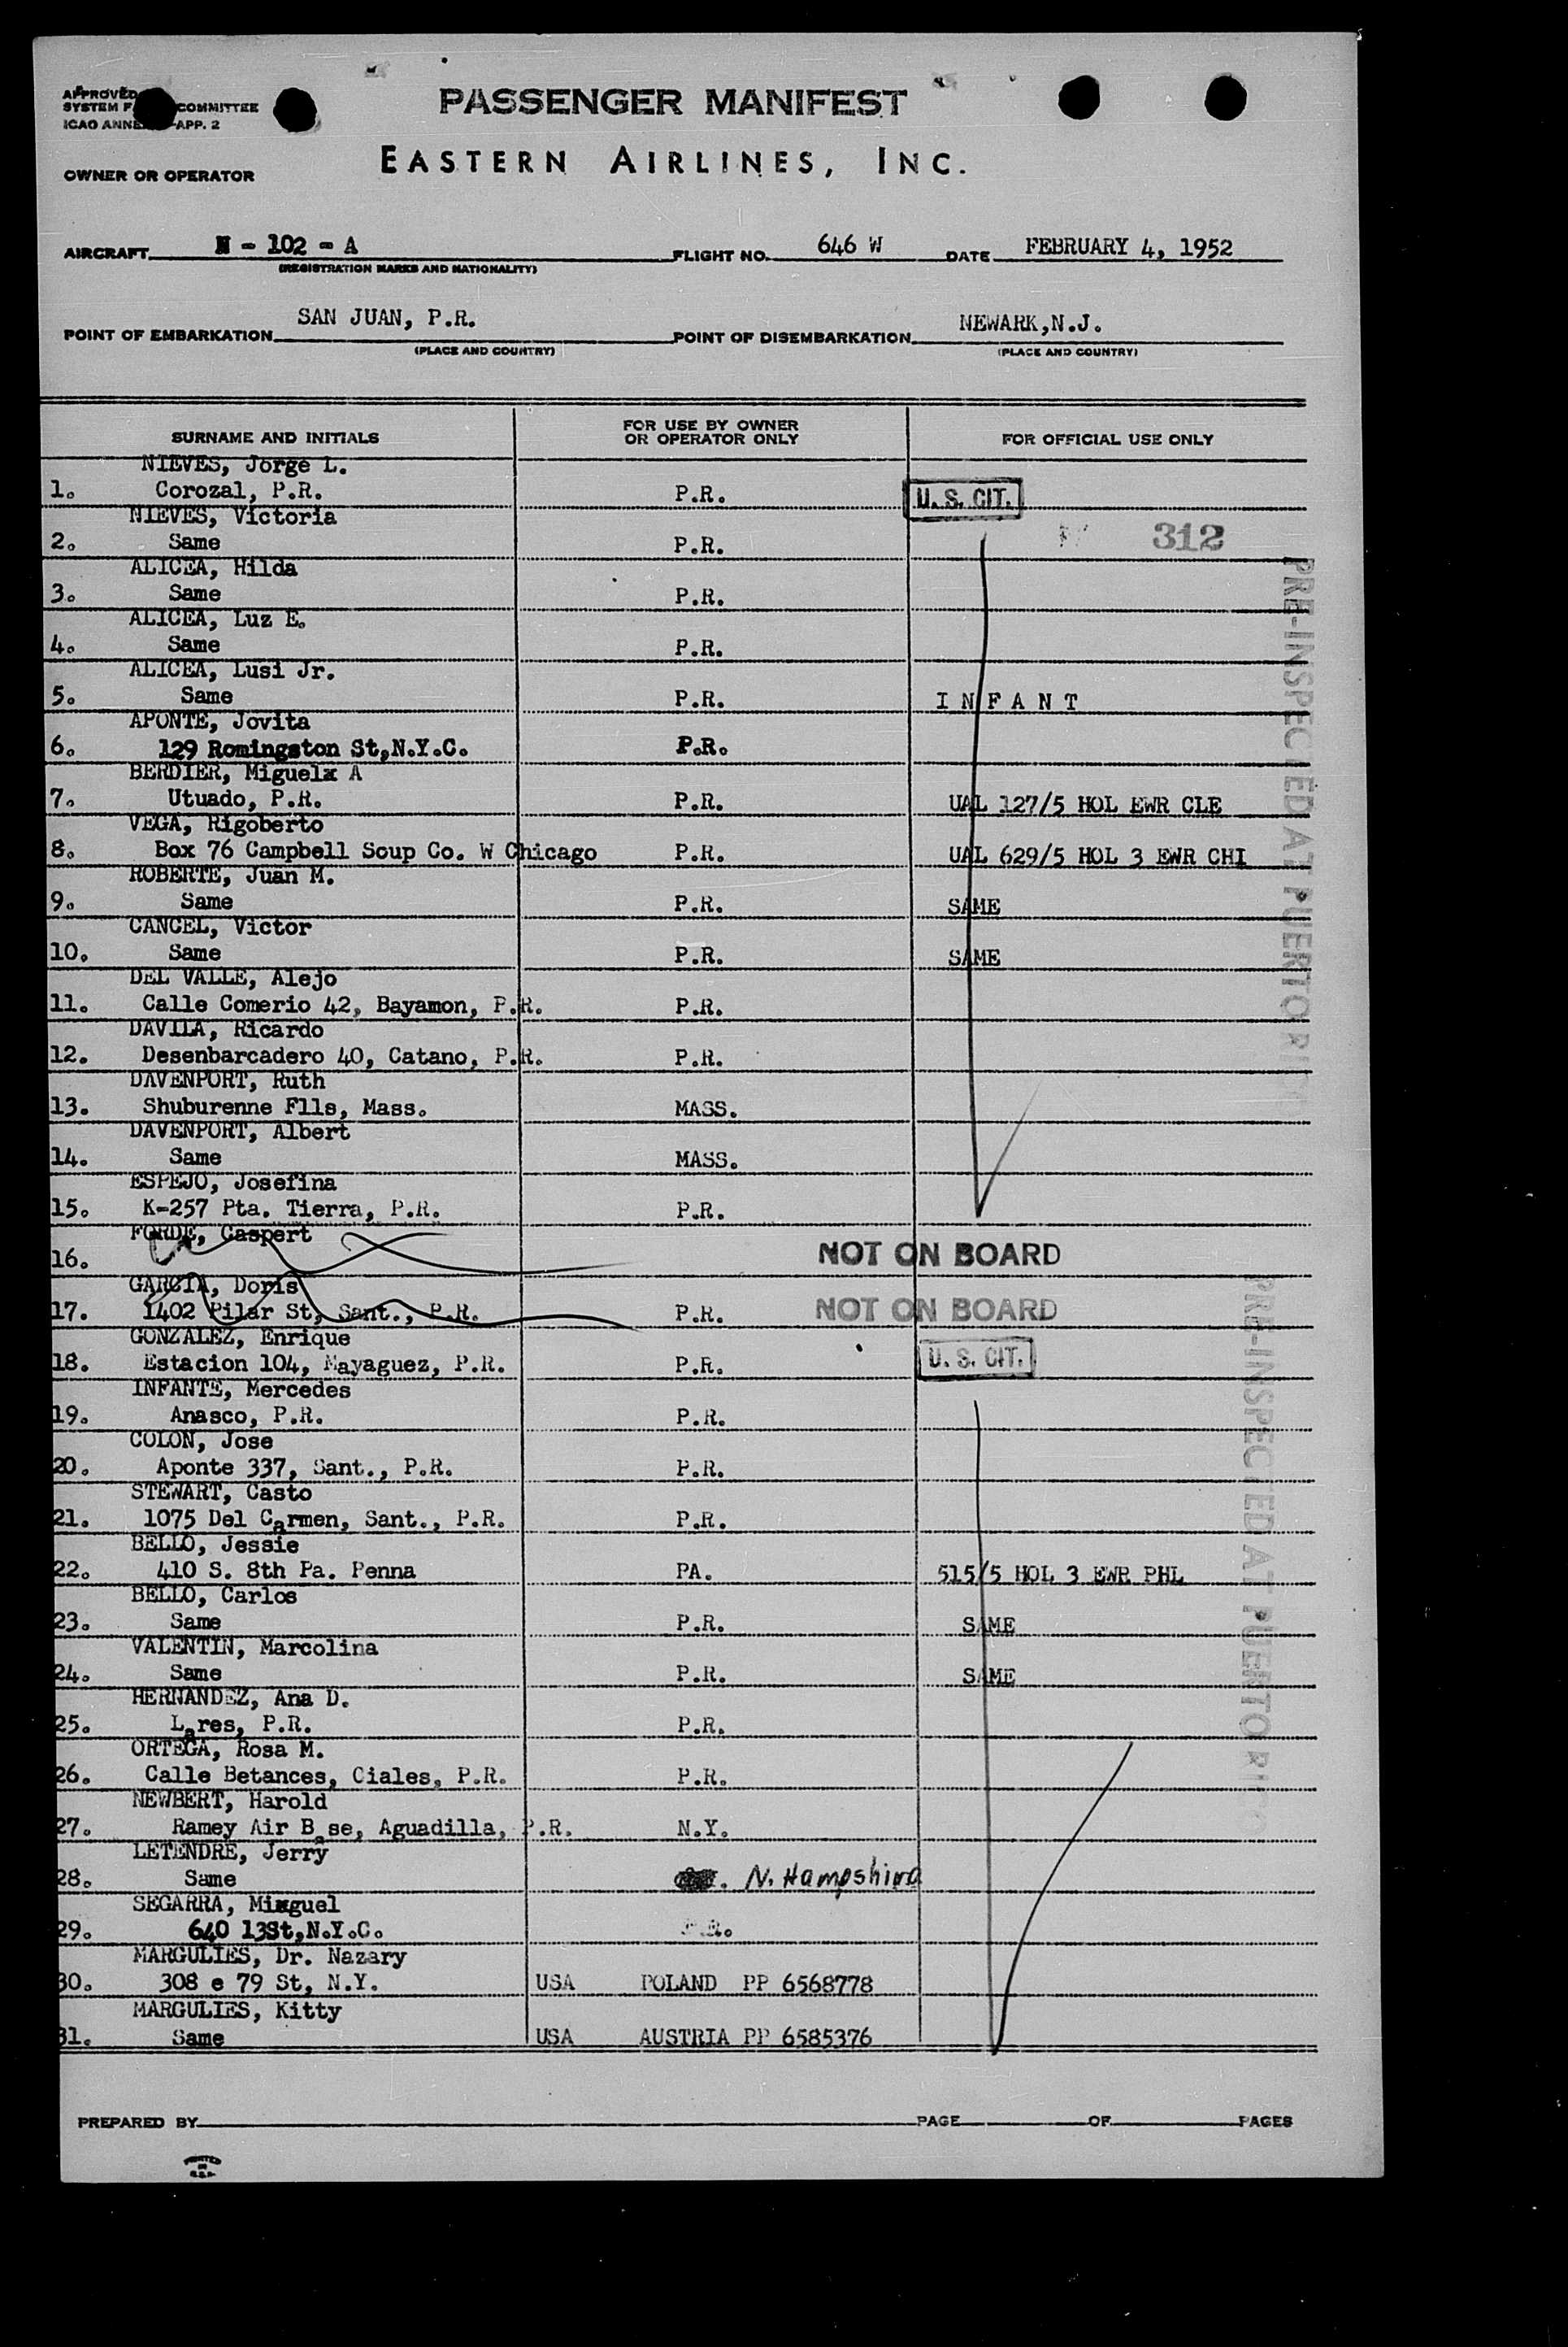 APPROVED
SYSTEM F COMMITTEE
ICAO ANNE APP. 2
PASSENGER MANIFEST
EASTERN AIRLINES, INC.
OWNER OR OPERATOR
AIRCRAFT N - 102 - A FLIGHT NO. 646 W DATE FEBRUARY 4, 1952
(REGISTRATION MARKS AND NATIONALITY)
POINT OF EMBARKATION SAN JUAN, P.R. POINT OF DISEMBARKATION NEWARK,N.J.
(PLACE AND COUNTRY) (PLACE AND COUNTRY)
SURNAME AND INITIALS FOR USE BY OWNER OR OPERATOR ONLY FOR OFFICIAL USE ONLY
NIEVES, Jorge L.
1. Corozal, P.R. P.R. U. S. CIT.
NIEVES, Victoria
2. Same P.R. 312
ALICEA, Hilda
3. Same P.R.
ALICEA, Luz E.
4. Same P.R.
ALICEA, Lusi Jr.
5. Same P.R. I N F A N T
APONTE, Jovita
6. 129 Romingston St,N.Y.C. P.R.
BERDIER, Miguelx A
7. Utuado, P.R. P.R. UAL 127/5 HOL EWR CLE
VEGA, Rigoberto
8. Box 76 Campbell Soup Co. W Chicago P.R. UAL 629/5 HOL 3 EWR CHI
ROBERTE, Juan M.
9. Same P.R. SAME
CANCEL, Victor
10. Same P.R. SAME
DEL VALLE, Alejo
11. Calle Comerio 42, Bayamon, P.R. P.R.
DAVILA, Ricardo
12. Desenbarcadero 40, Catano, P.R. P.R.
DAVENPORT, Ruth
13. Shuburenne Flls, Mass. MASS.
DAVENPORT, Albert
14. Same MASS.
ESPEJO, Josefina
15. K-257 Pta. Tierra, P.R. P.R.
PRE-INSPECTED AT PUERTO RICO
FORDE, Caspert
16. NOT ON BOARD
GARCIA, Doris
17. 1402 Pilar St, Sant., P.R. P.R. NOT ON BOARD
GONZALEZ, Enrique
18. Estacion 104, Mayaguez, P.R. P.R. U. S. CIT.
INFANTE, Mercedes
19. Anasco, P.R. P.R.
COLON, Jose
20. Aponte 337, Sant., P.R. P.R.
STEWART, Casto
21. 1075 Del Carmen, Sant., P.R. P.R.
BELLO, Jessie
22. 410 S. 8th Pa. Penna PA. 515/5 HOL 3 EWR PHL
BELLO, Carlos
23. Same P.R. SAME
VALENTIN, Marcolina
24. Same P.R. SAME
HERNANDEZ, Ana D.
25. Lares, P.R. P.R.
ORTEGA, Rosa M.
26. Calle Betances, Ciales, P.R. P.R.
NEWBERT, Harold
27. Ramey Air Base, Aguadilla, P.R. N.Y.
LETENDRE, Jerry
28. Same N. Hampshire
SEGARRA, Mixguel
29. 640 13St,N.Y.C. P.R.
MARGULIES, Dr. Nazary
30. 308 e 79 St, N.Y. USA POLAND PP 6568778
MARGULIES, Kitty
31. Same USA AUSTRIA PP 6585376
PRE-INSPECTED AT PUERTO RICO
PREPARED BY PAGE OF PAGES
PRINTED IN U.S.A.